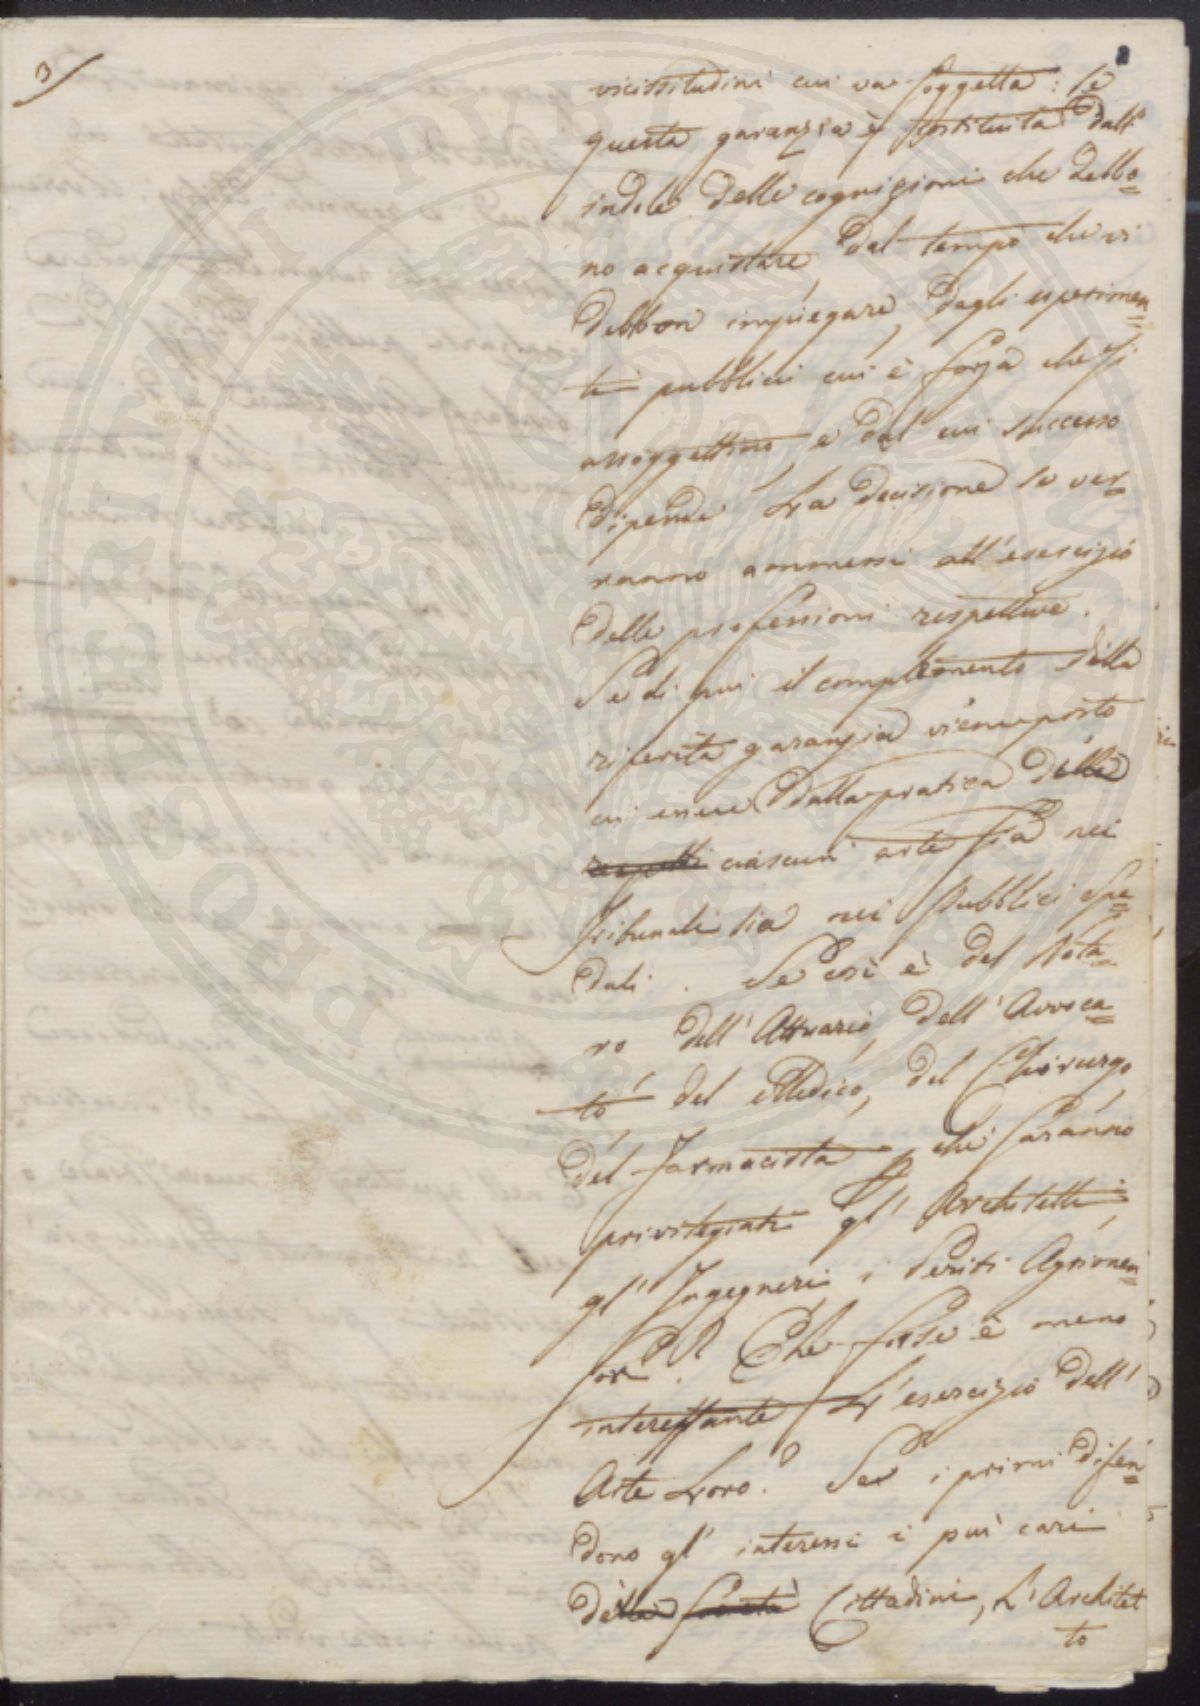 3
vicissitudini cui va soggetta: se
questa garanzia è costituita dall'
indole delle cognizioni che debbo=
no acquistare, dal tempo che vi
debbon impiegare, dagli esperimen=
ti pubblici cui è forza che si
assoggettino, e dal cui successo
dipende la decisione se ver=
ranno ammessi all'esercizio
delle professioni respettive.
Se di più il complemento della
riferita garanzia viene posto
in essere dalla pratica delle
ciascun arte sia nei
Tribunali sia nei Pubblici Spe=
dali. Se così è del Nota=
ro dell'Attuario, dell'Avvoca=
to del Medico, del Chirurgo,
del Farmacista, che saranno
privilegiati gl'Architetti,
gl'Ingegneri i Periti Agrimen=
sori? Che forse è meno
interessante l'esercizio dell'
Arte Loro? Se i primi difen=
dono gl'interessi i più cari
dei Società Cittadini, L'Architet
to
PROPRIUM